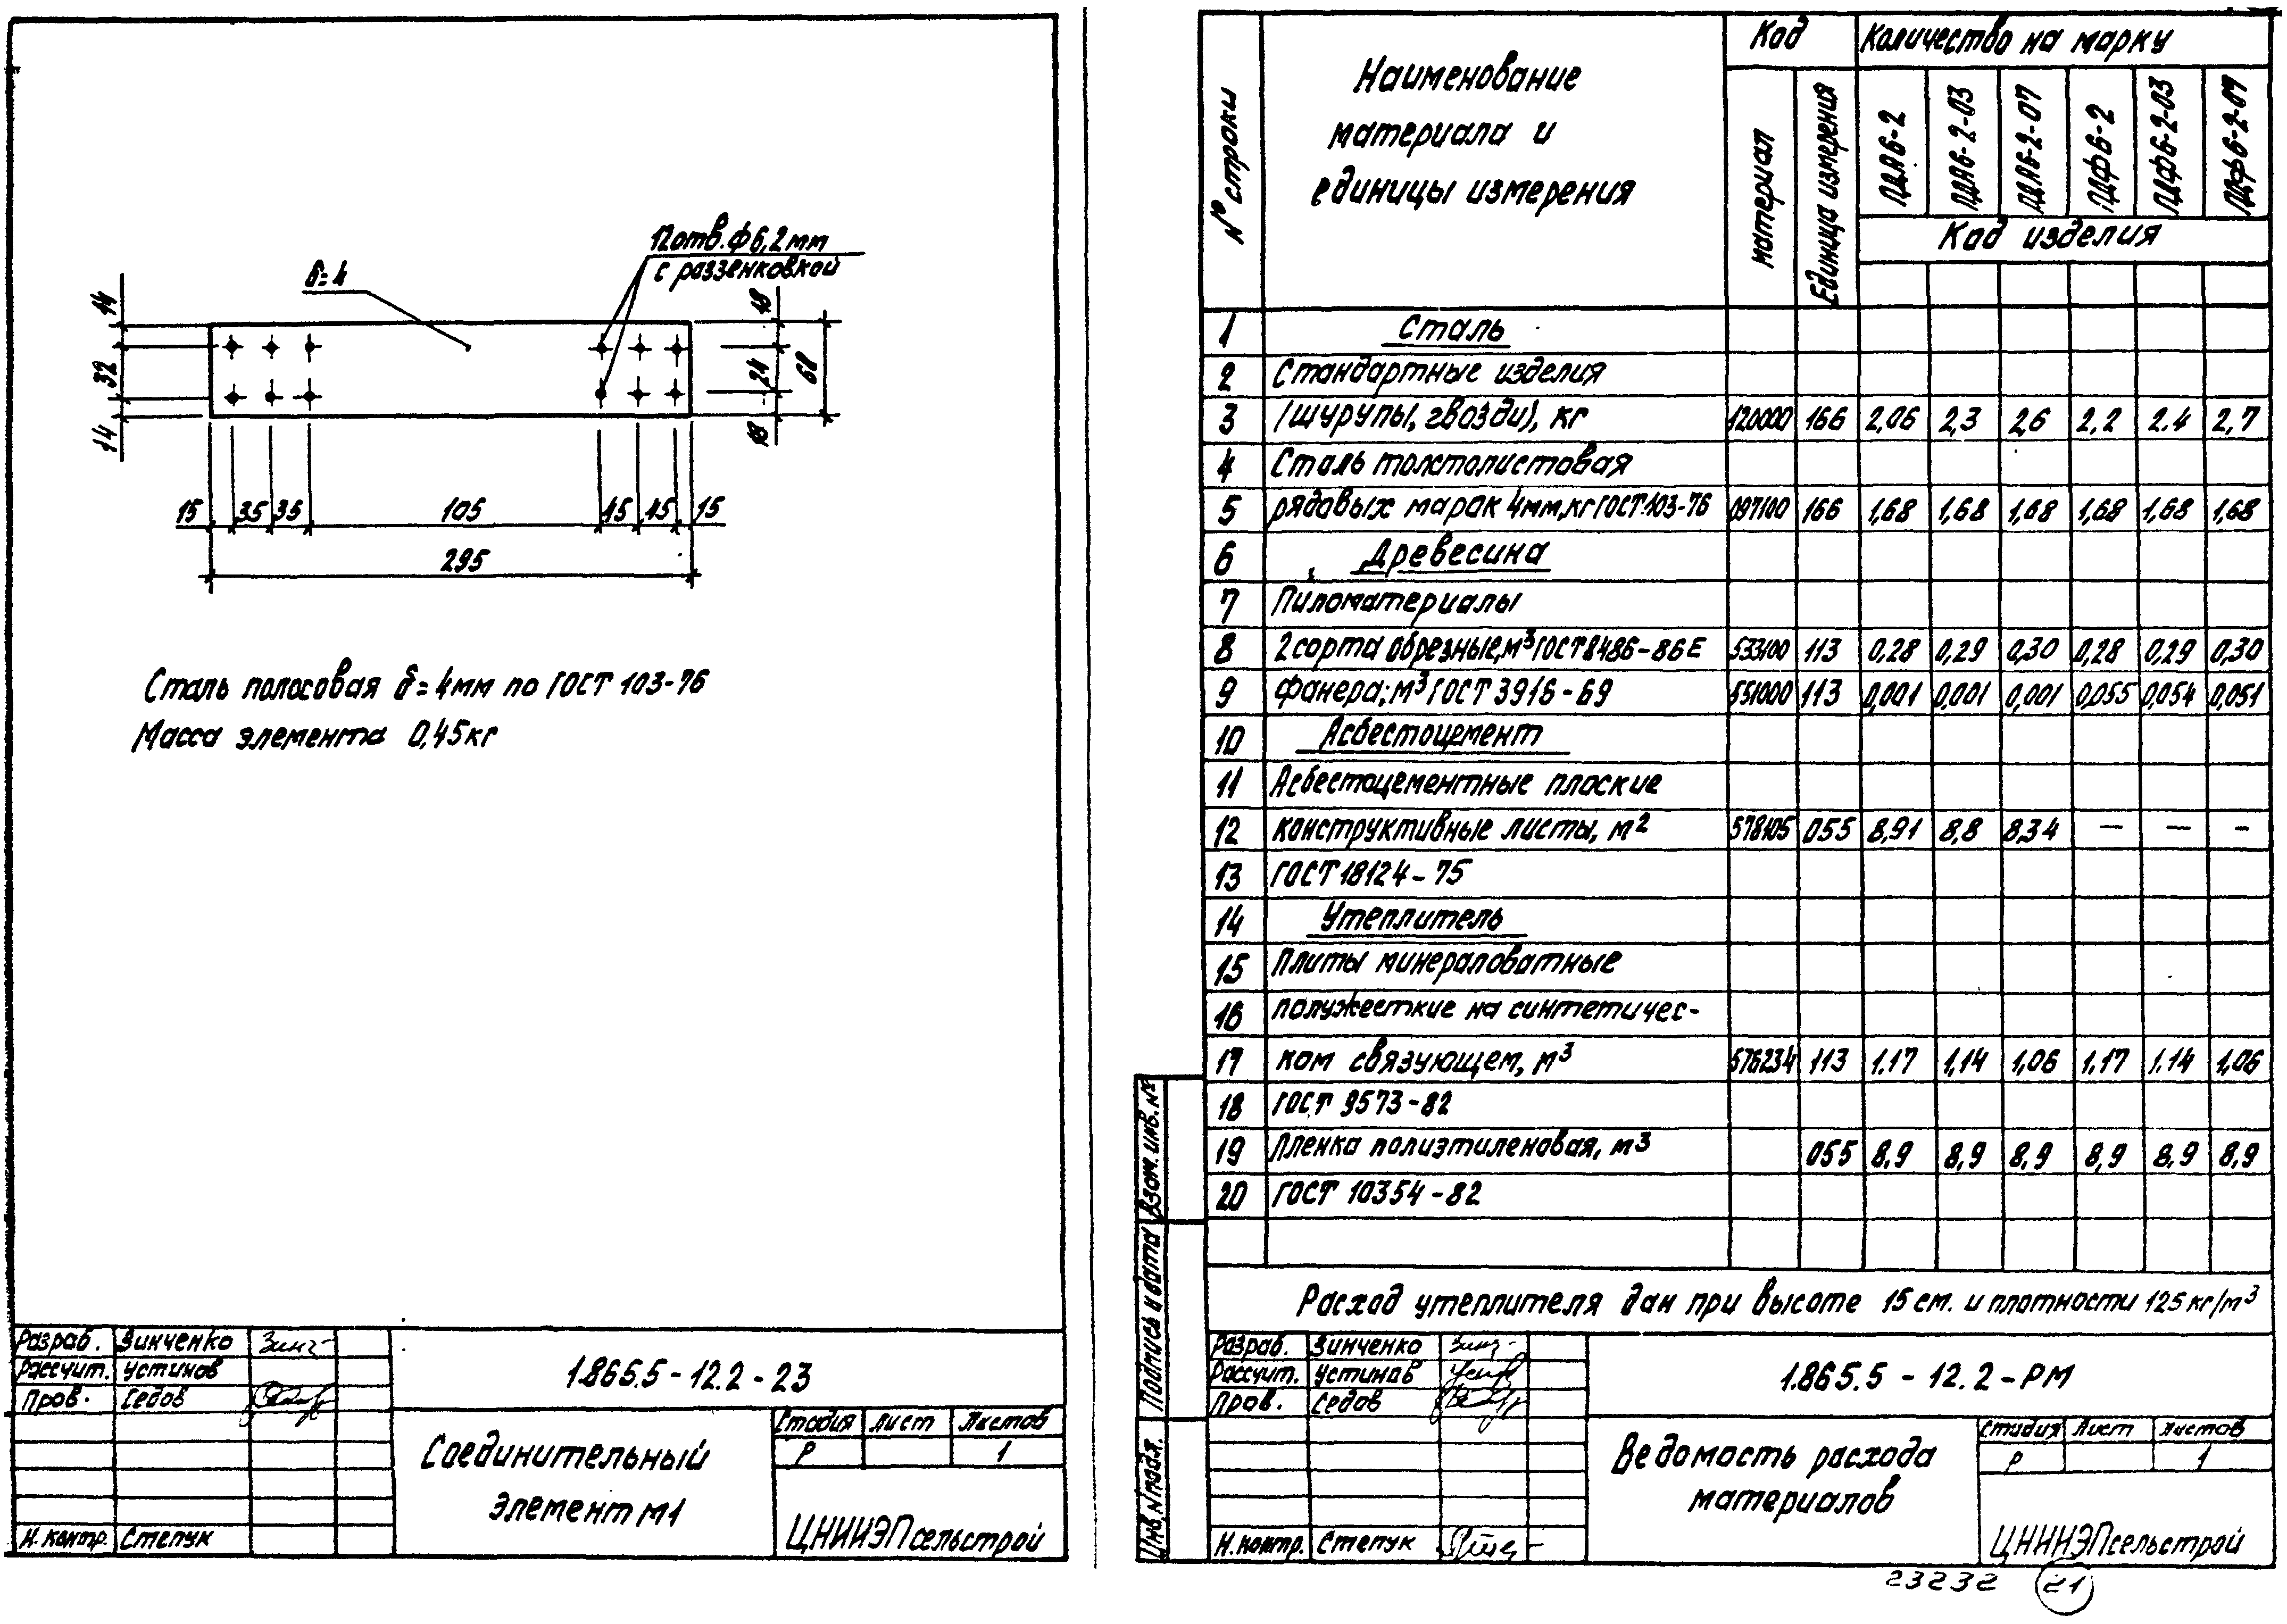 12 отв. ф 6,2 мм
с раззенковкой
δ=4
14
32
14
18
24
18
60
15 35 35 105 45 45 15
295
Сталь полосовая δ=4мм по ГОСТ 103-76
Масса элемента 0,45кг
Разраб. Зинченко
Рассчит. Устинов
Пров. Седов
Н. контр. Степук
1.865.5-12.2-23
Соединительный
элемент М1
Стадия Лист Листов
Р 1
ЦНИИЭПсельстрой
№ строки
Наименование
материала и
единицы измерения
Код
материал
Единица измерения
Количество на марку
ПДА6-2 ПДА6-2-03 ПДА6-2-07 ПДФ6-2 ПДФ6-2-03 ПДФ6-2-07
Код изделия
1 Сталь
2 Стандартные изделия
3 (шурупы, гвозди), кг 120000 166 2,06 2,3 2,6 2,2 2.4 2,7
4 Сталь толстолистовая
5 рядовых марок 4мм, кг ГОСТ 103-76 097100 166 1,68 1,68 1,68 1,68 1,68 1,68
6 Древесина
7 Пиломатериалы
8 2 сорта обрезные, м³ ГОСТ 8486-86Е 533100 113 0,28 0,29 0,30 0,28 0,29 0,30
9 фанера; м³ ГОСТ 3916-69 551000 113 0,001 0,001 0,001 0,055 0,054 0,051
10 Асбестоцемент
11 Асбестоцементные плоские
12 конструктивные листы, м² 578105 055 8,91 8,8 8,34 — — -
13 ГОСТ 18124-75
14 Утеплитель
15 Плиты минераловатные
16 полужесткие на синтетичес-
17 ком связующем, м³ 576234 113 1.17 1,14 1,06 1.17 1.14 1,06
18 ГОСТ 9573-82
19 Пленка полиэтиленовая, м³ 055 8,9 8,9 8,9 8,9 8,9 8,9
20 ГОСТ 10354-82
Расход утеплителя дан при высоте 15 см. и плотности 125 кг/м³
Взам. инв. №
Подпись и дата
Инв. № подл.
Разраб. Зинченко
Рассчит. Устинов
Пров. Седов
Н. контр. Степук
1.865.5-12.2-РМ
Ведомость расхода
материалов
Стадия Лист Листов
Р 1
ЦНИИЭПсельстрой
23232 21